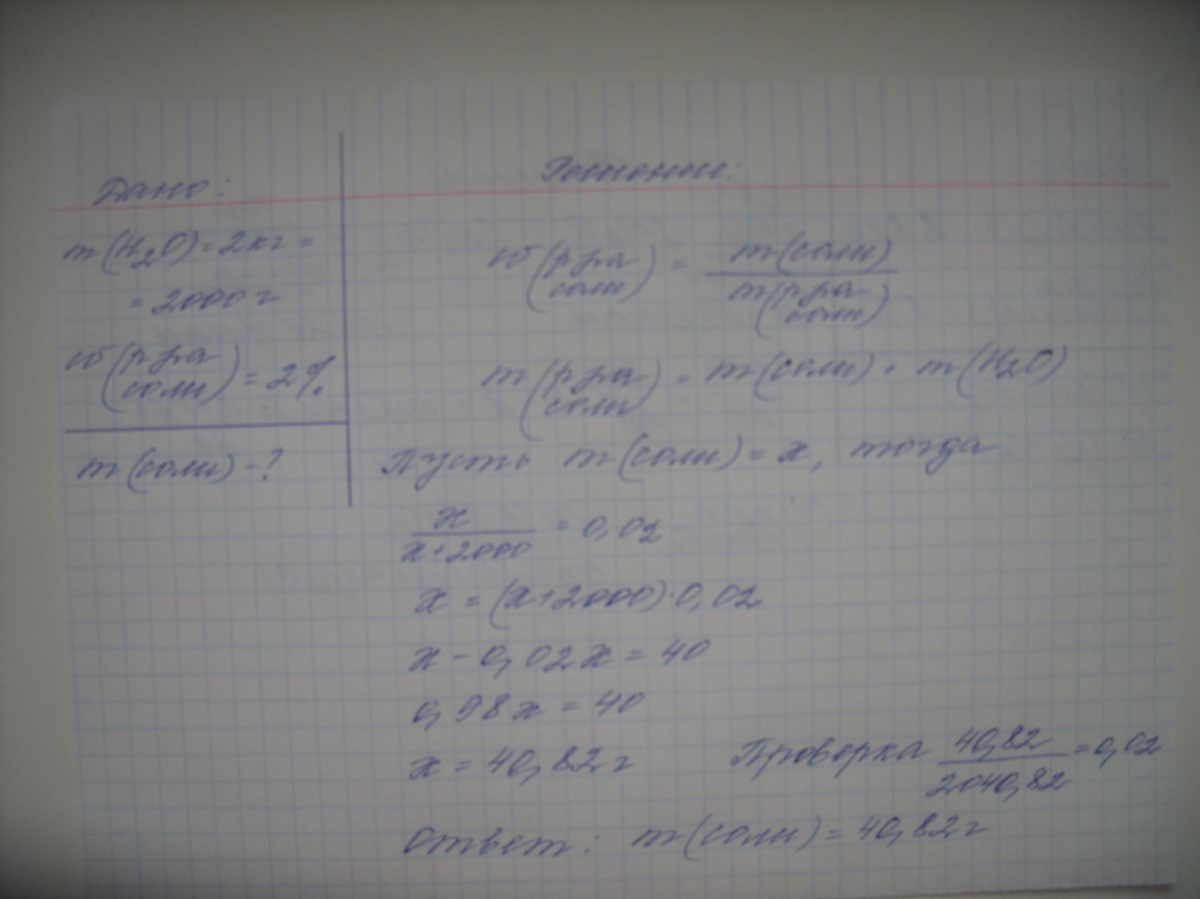 Дано:
m(H₂O) = 2кг =
= 2000 г
w(р-ра соли) = 2%
m(соли) - ?
Решение:
w(р-ра соли) = m(соли) / m(р-ра соли)
m(р-ра соли) = m(соли) + m(H₂O)
Пусть m(соли) = x, тогда
x / x+2000 = 0,02
x = (x+2000)·0,02
x - 0,02x = 40
0,98x = 40
x = 40,82 г
Проверка 40,82 / 2040,82 = 0,02
Ответ: m(соли) = 40,82 г